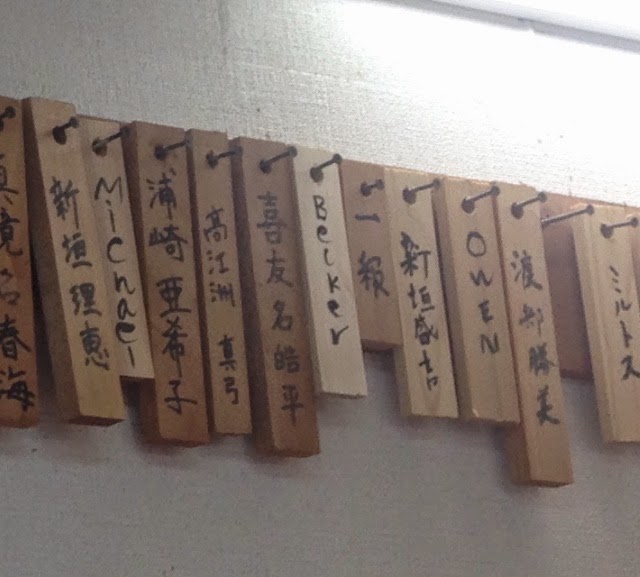 真境名春海
新垣理恵
Michael
浦崎亜希子
高江洲 真弓
喜友名皓平
Beiker
一級
新垣盛吉
OWEN
渡部勝美
ミルトス